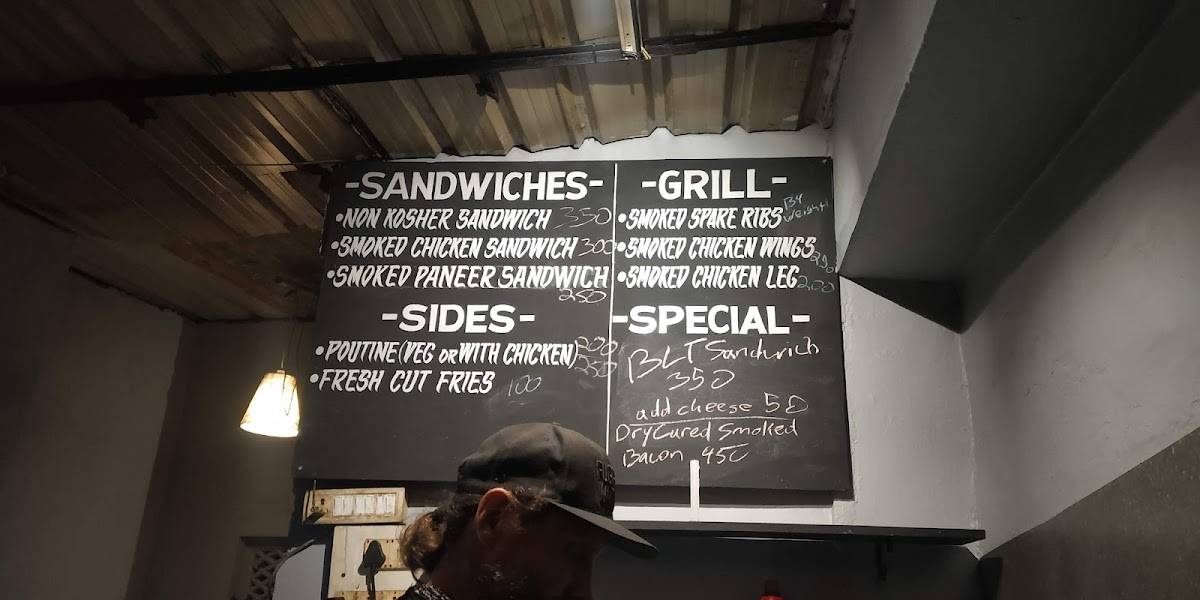 -SANDWICHES-
•NON KOSHER SANDWICH 350
•SMOKED CHICKEN SANDWICH 300
•SMOKED PANEER SANDWICH
250
-SIDES-
•POUTINE (VEG OR WITH CHICKEN) 200
250
•FRESH CUT FRIES 100
-GRILL-
•SMOKED SPARE RIBS By
weight
•SMOKED CHICKEN WINGS
•SMOKED CHICKEN LEG 200
-SPECIAL-
BLT Sandwich
350
add cheese 50
Dry Cured Smoked
Bacon 450